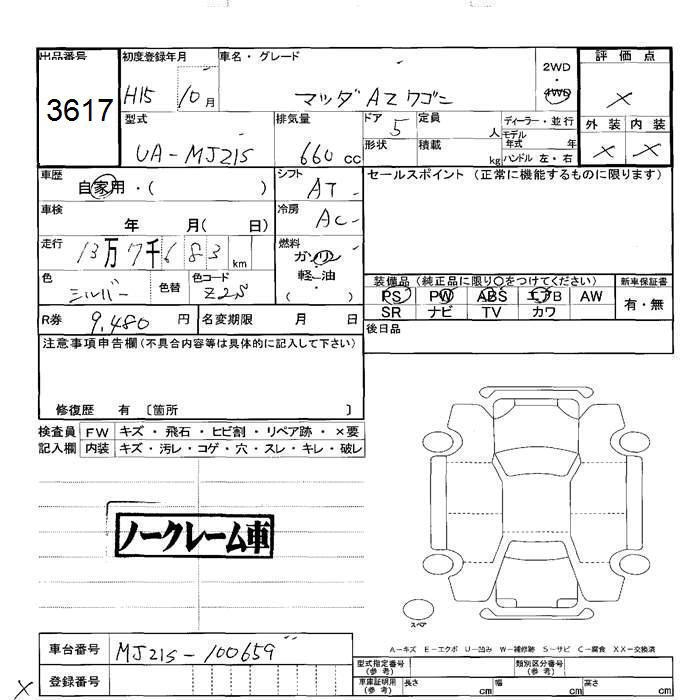 出品番号 初度登録年月 車名・グレード 2WD 評価点
3617 H15 10月 マツダ AZワゴン ・ 4WD ×
型式 排気量 ドア 5 定員 人 ディーラー・並行 外装 内装
UA-MJ21S 660 cc 形状 積載 kg モデル年式 年 × ×
ハンドル 左・右
車歴 自家用・( ) シフト AT セールスポイント (正常に機能するものに限ります)
車検 年 月( 日) 冷房 AC
走行 13万7千683 km 燃料 ガソリン
色 シルバー 色替 色コード Z2S 軽・油 ( ) 装備品 (純正品に限り○をつけてください) 新車保証書
PS PW ABS エアB AW 有・無
R券 9,480 円 名変期限 月 日 SR ナビ TV カワ
後日品
注意事項申告欄(不具合内容等は具体的に記入して下さい)
修復歴 有 〔箇所 〕
検査員 FW キズ・飛石・ヒビ割・リペア跡・×要
記入欄 内装 キズ・汚レ・コゲ・穴・スレ・キレ・破レ
ノークレーム車
スペア
A-キズ E-エクボ U-凹み W-補修跡 S-サビ C-腐食 XX-交換済
車台番号 MJ21S-100659
型式指定番号(参考) 類別区分番号(参考)
× 登録番号 車庫証明用(参考) 長さ cm 幅 cm 高さ cm